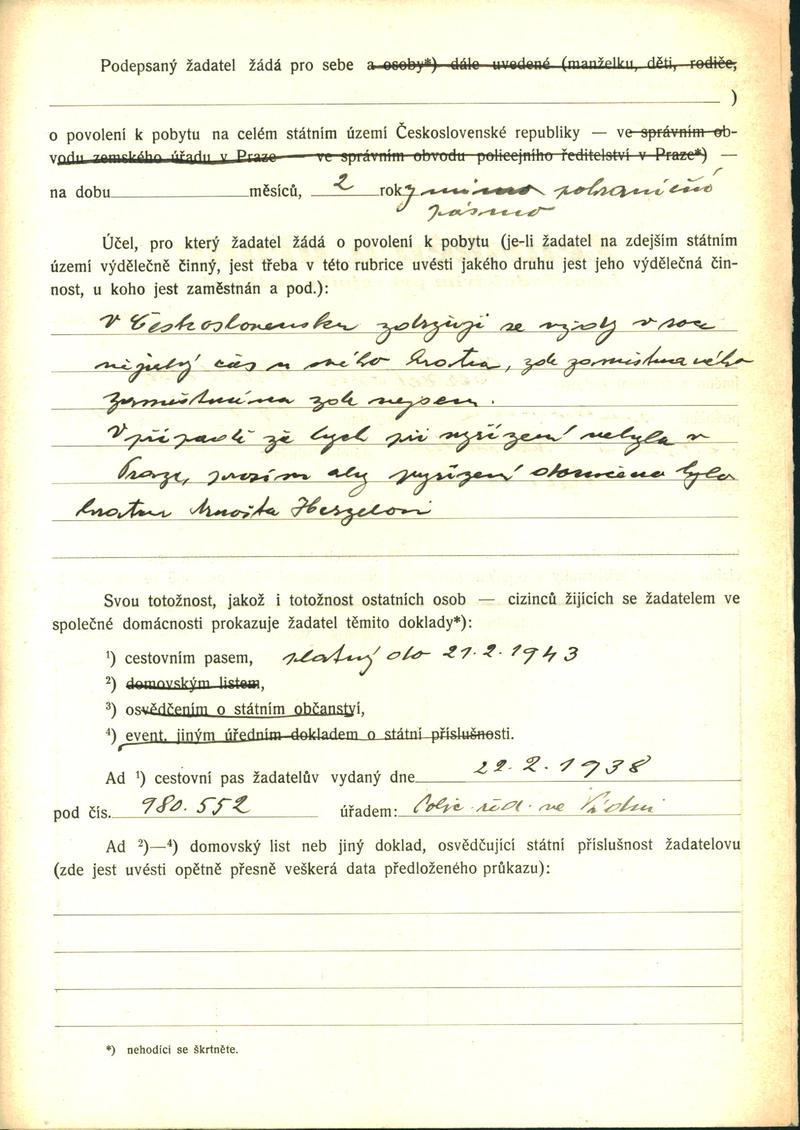 Podepsaný žadatel žádá pro sebe a osoby*) dále uvedené (manželku, děti, rodiče,
)
o povolení k pobytu na celém státním území Československé republiky — ve správním ob-
vodu zemského úřadu v Praze — ve správním obvodu policejního ředitelství v Praze*) —
na dobu měsíců, 2 roky mimo pohraniční
pásmo
Účel, pro který žadatel žádá o povolení k pobytu (je-li žadatel na zdejším státním
území výdělečně činný, jest třeba v této rubrice uvésti jakého druhu jest jeho výdělečná čin-
nost, u koho jest zaměstnán a pod.):
V Československu zdržuji se vždy v roce
nějaký čas u svého bratra, zde zaměstnaného
zaměstnána zde nejsem.
V případě že bych při vyřízení nebyla v
Praze, prosím aby vyřízení doručeno bylo
bratru Arnoštu Herzelovi
Svou totožnost, jakož i totožnost ostatních osob — cizinců žijících se žadatelem ve
společné domácnosti prokazuje žadatel těmito doklady*):
¹) cestovním pasem, platný do 21.2.1943
²) domovským listem,
³) osvědčením o státním občanství,
⁴) event. jiným úředním dokladem o státní příslušnosti.
Ad ¹) cestovní pas žadatelův vydaný dne 22.2.1938
pod čís. 980.552 úřadem: Polic. řed. ve Vídni
Ad ²)—⁴) domovský list neb jiný doklad, osvědčující státní příslušnost žadatelovu
(zde jest uvésti opětně přesně veškerá data předloženého průkazu):
*) nehodící se škrtněte.